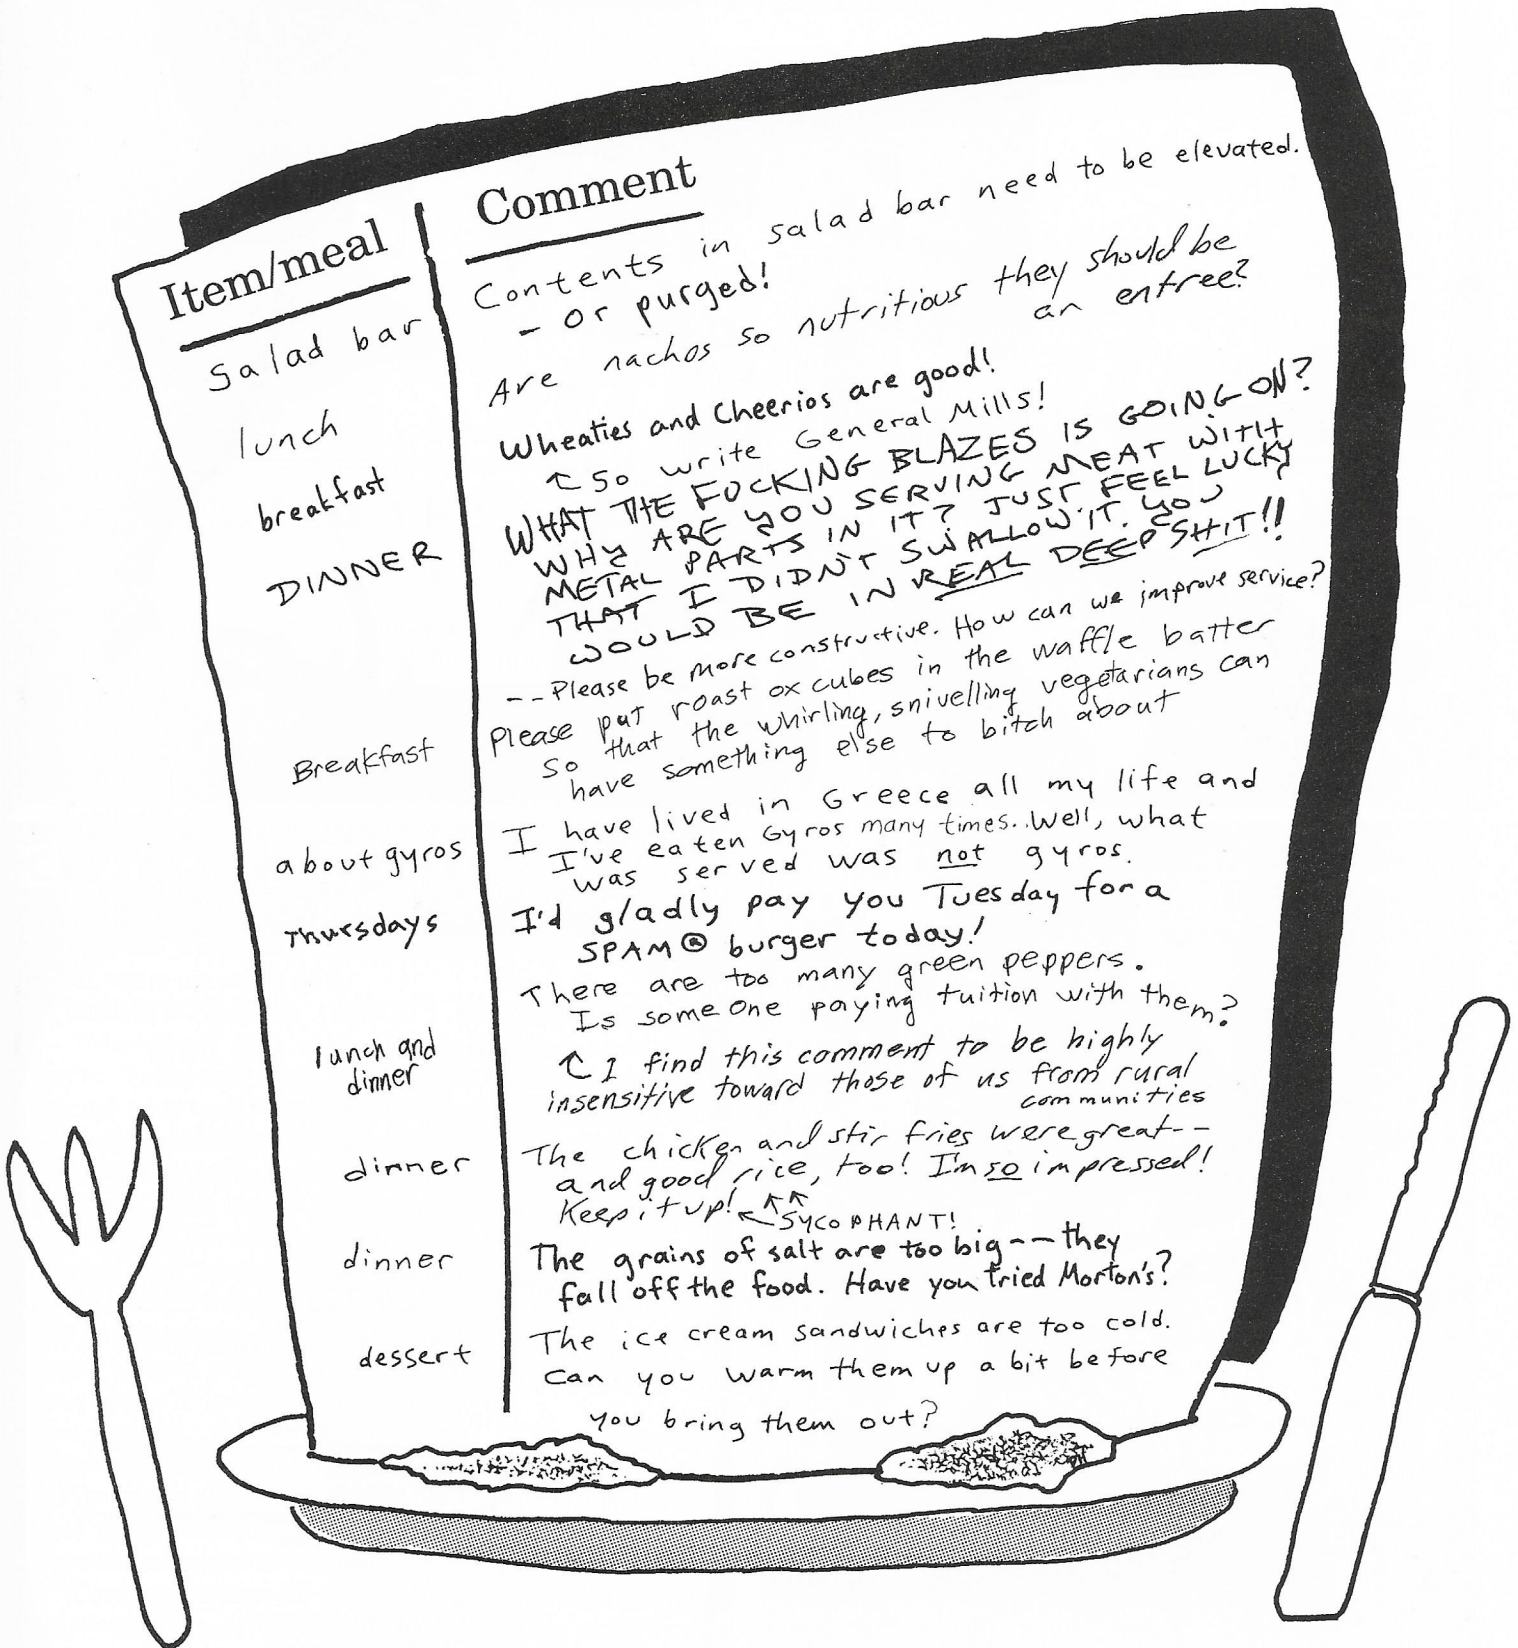 Item/meal
Comment
Salad bar
Contents in salad bar need to be elevated.
- Or purged!
lunch
Are nachos so nutritious they should be
an entree?
breakfast
Wheaties and Cheerios are good!
↑ So write General Mills!
DINNER
WHAT THE FUCKING BLAZES IS GOING ON?
WHY ARE YOU SERVING MEAT WITH
METAL PARTS IN IT? JUST FEEL LUCKY
THAT I DIDN'T SWALLOW IT. YOU
WOULD BE IN REAL DEEP SHIT!!
-- Please be more constructive. How can we improve service?
Breakfast
Please put roast ox cubes in the waffle batter
so that the whirling, snivelling vegetarians can
have something else to bitch about
about gyros
I have lived in Greece all my life and
I've eaten Gyros many times.. Well, what
was served was not gyros.
Thursdays
I'd gladly pay you Tuesday for a
SPAM® burger today!
lunch and
dinner
There are too many green peppers.
Is someone paying tuition with them?
↑ I find this comment to be highly
insensitive toward those of us from rural
communities
dinner
The chicken and stir fries were great--
and good rice, too! I'm so impressed!
Keep it up! ← SYCOPHANT!
dinner
The grains of salt are too big -- they
fall off the food. Have you tried Morton's?
dessert
The ice cream sandwiches are too cold.
Can you warm them up a bit before
you bring them out?